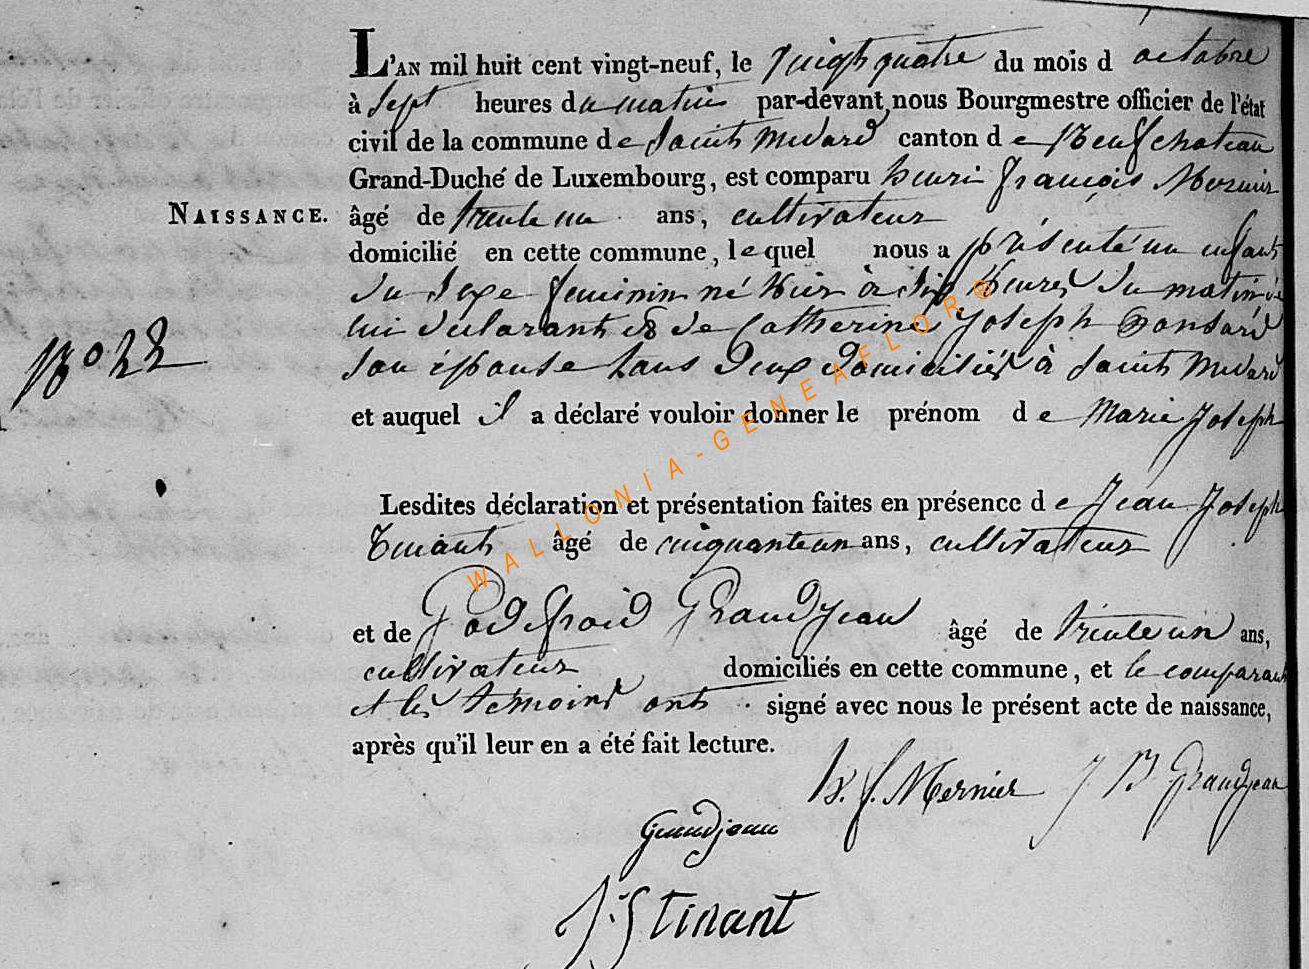 L'AN mil huit cent vingt-neuf, le vingt quatre du mois d octobre
à sept heures du matin par-devant nous Bourgmestre officier de l'état
civil de la commune de Saint Médard canton de Neufchateau
Grand-Duché de Luxembourg, est comparu henri françois Mernier
NAISSANCE. âgé de trente un ans, cultivateur
domicilié en cette commune, lequel nous a présenté un enfant
du sexe feminin né hier à six heures du matin de
lui déclarant & de Catherine Joseph Ponsard
N° 22
son épouse tous deux domiciliés à Saint Médard
et auquel il a déclaré vouloir donner le prénom de Marie Joseph
Lesdites déclaration et présentation faites en présence de Jean Joseph
Tinant âgé de cinquante un ans, cultivateur
et de Godefroid Grandjean âgé de trente un ans,
cultivateur domiciliés en cette commune, et le comparant
et les temoins ont signé avec nous le présent acte de naissance,
après qu'il leur en a été fait lecture.
h. f. Mernier J B Grandjean
Grandjean
J. J Tinant
WALLONIA-GENEAFLOR©